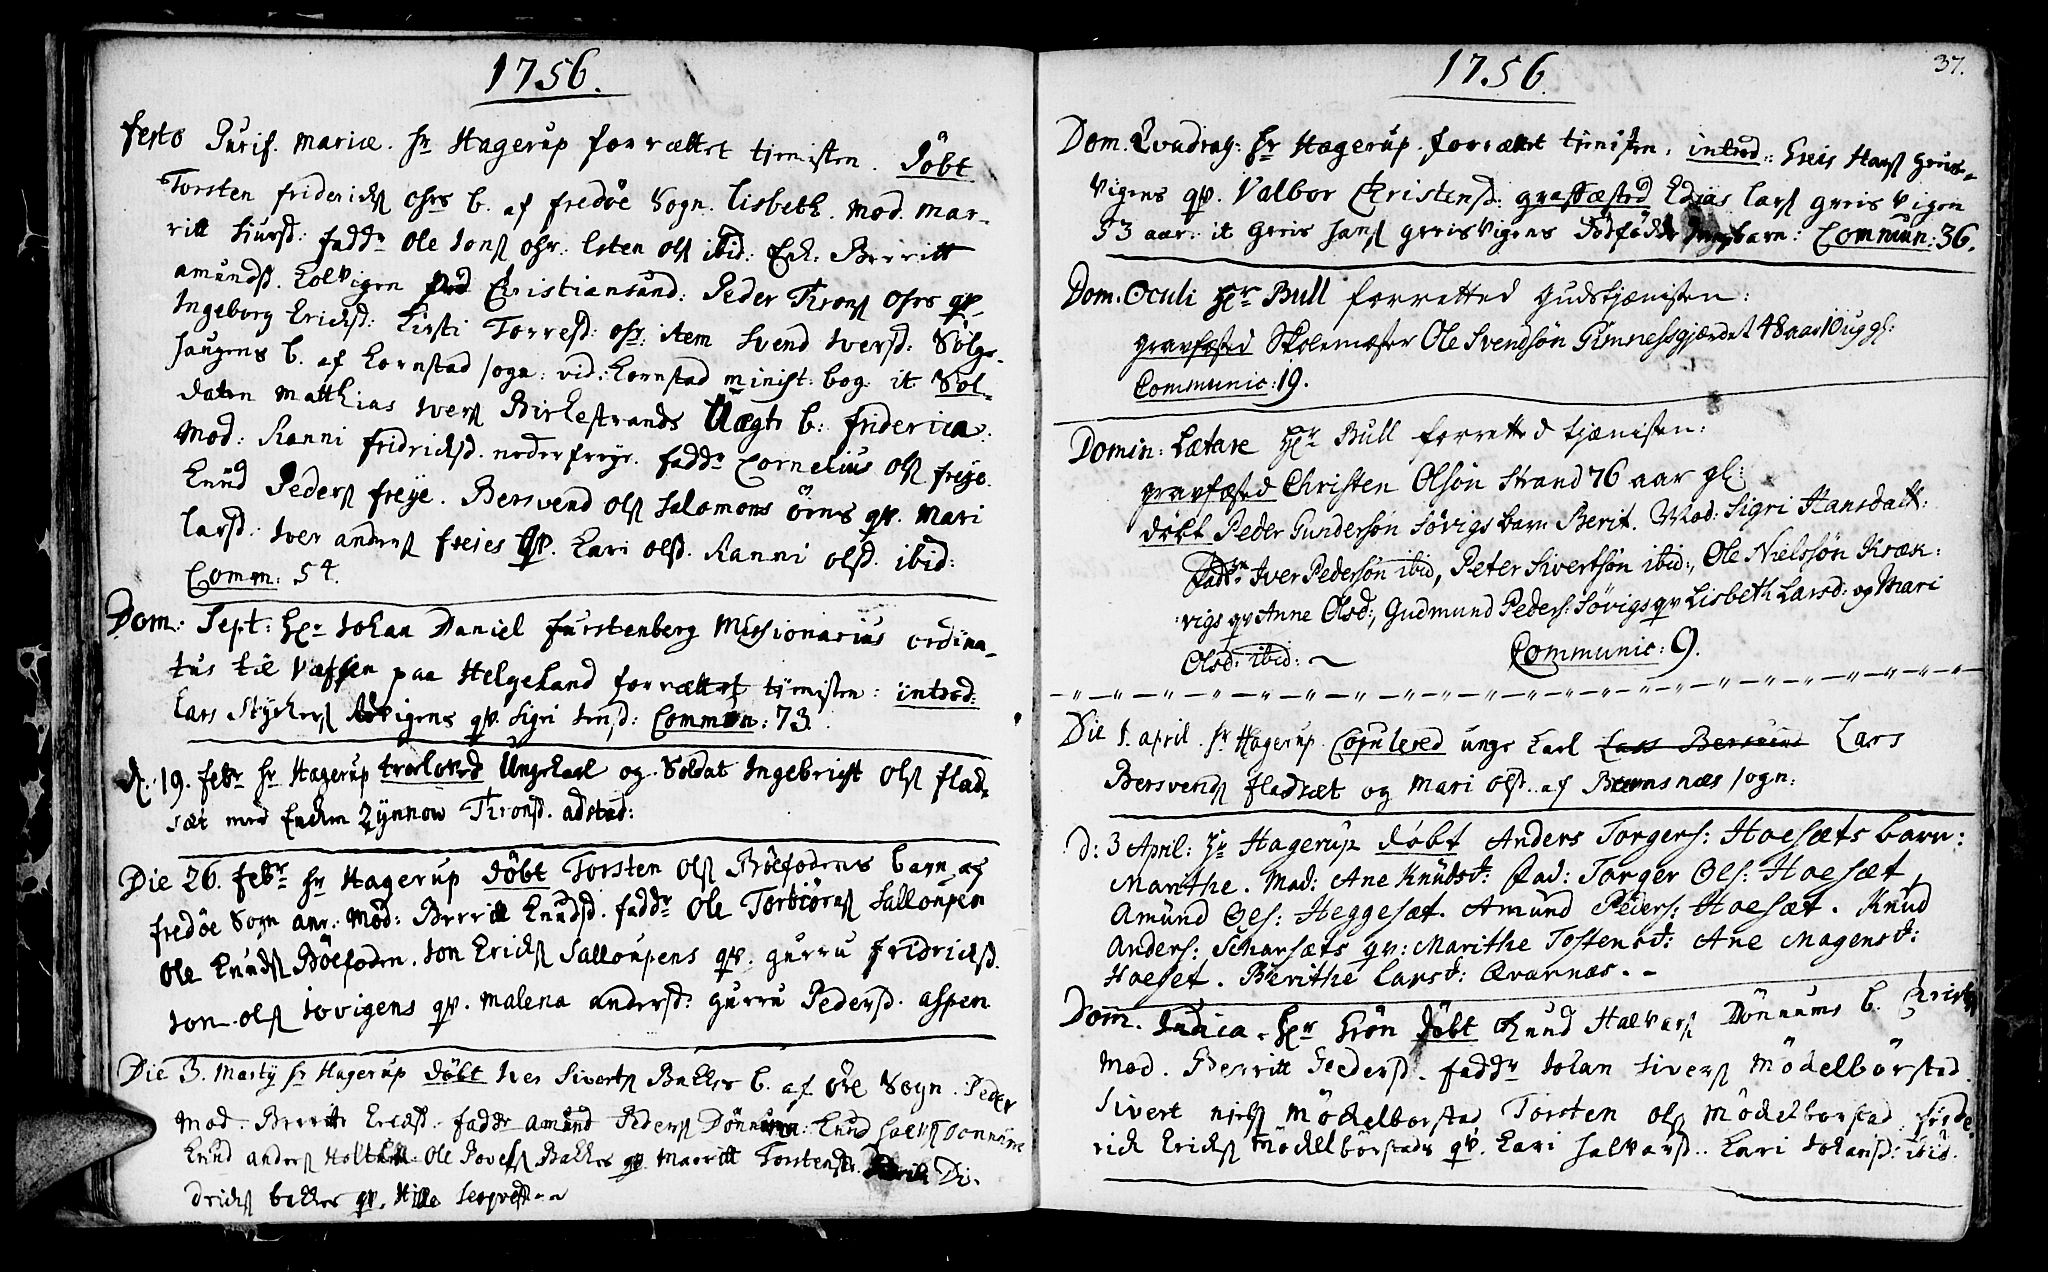 1756.
festo Purif. Mariæ. Hr Hagerup forrættet tjenisten. Döbt
Torsten friderichs ohrs b. af fredöe Sogn. Lisbeth. Mod. Mar-
ritt Siursd: fadd: Ole Jons ohr. Esten Ols ibid: Enk. Berritt
amunds. Kolvigen ved Christiansund: Peder Throns Ohrs qv.
Ingeborg Ericksd: Kirsti Torresd: ohr. item Svend Iversd: Solgs-
haugens b. af Kornstad sogn: vid: Kornstad minist: bog: it Sol-
daten Matthias Ivers Birkestrands Uægte b: friderica.
Mod: Ranni fridrichsd. nederfreye. fadd: Cornelius Ols freye.
Knud Peders freye. Bersvend Ols Salomons örnes qv. Mari
Larsd: Iver anders freies qv. Kari olsd. Ranni olsd. ibid:
Comm: 54.
Dom: Sept: Hr Johan Daniel furstenberg Missionarius ordina-
tus til Vefsen paa Helgeland forrættet tjenisten: introd:
Lars Styckers qv. Sigri Jensd: Commun: 73.
d. 19. febr Hr Hagerup troloved Ungekarl og Soldat Ingebricht Ols flad-
sæt med Enken Synnow Thronsd. adstad:
Die 26. febr Hr Hagerup döbt Torsten Ols Böefodens barn af
fredöe Sogn anr: Mod: Berritt Knudsd. fadd: Ole Torbiörns Salloupen
Ole Knuds Böefoden. Jon Ericks Salloupens qv. gurru fridricksd.
Jon ols Sovigens qv. Malena andersd: gurru Pedersd. aspen
Die 3. Martij Hr Hagerup döbt Iver Siverts Bakkes b. af öre Sogn. Peder
Mod. Berritt Ericksd. fadd: Amund Peders Dönnum: Knud halvs Dönnum
Knud anders Ole Povels Bakkes qv. Marritt Torstensdr. Di-
dricks bakkes qv.
1756. 37.
Dom. Qvadrag: Hr Hagerup forrættet tjenisten. introd: Greis Hans greis-
vigens qv. Valbor Christensd: graffæsted Elias Lars greisvigen
53 aar: it Greis Hans greisvigens dödfödde barn: Commun: 36.
Dom. Oculi Hr Bull forretted Gudstjænisten:
gravfæsted Skolemester Ole Svendsön Gimnessgjærdet 48 aar 10 ug gl:
Communic: 19.
Domin: Lætare Hr Bull forretted tjænisten:
gravfæsted Christen Olsön Strand 76 aar gl:
döbt Peder Gundersön Sövigs barn Berit. Mod: Sigri Hansdatt:
Fadr: Iver Pedersön ibid, Peter Sivertsön ibid:, Ole Nielssön Kræk:
vigs qv Anne Olsd:, Gudmund Peders: Sövigs qv Lisbeth Larsd: og Mari
Olsd: ibid: ~ Communic: 9.
Die 1. april. Hr Hagerup Copulered unge Karl Lars Bersvend Lars
Bersvends fladsæt og Mari olsd. af Bremsnæs sogn:
D: 3 April: Hr Hagerup döbt Anders Torgers: Hoesæts barn:
Marithe. Mad: Ane Knudsd: Fad: Torger Ols: Hoesæt,
Amund Ols: Heggesæt. Amund Peders: Hoesæt. Knud
Anders: Scharsæts qv: Marithe Tostensd: Ane Magensd:
Hoeset. Berithe Larsd: Qvarnæs. -
Dom. Judica. Hr Grön döbt Knud Halvars Dönnums b. Christ
Mod. Berritt Pedersd. fadd: Johan Sivers Mödelborstad.
Sivert niels Möckelborstad Torsten ols Möckelborstad. fride-
rick Ericks Möckelborstads qv. Kari Halvarsd. Kari Johansd: ibid.